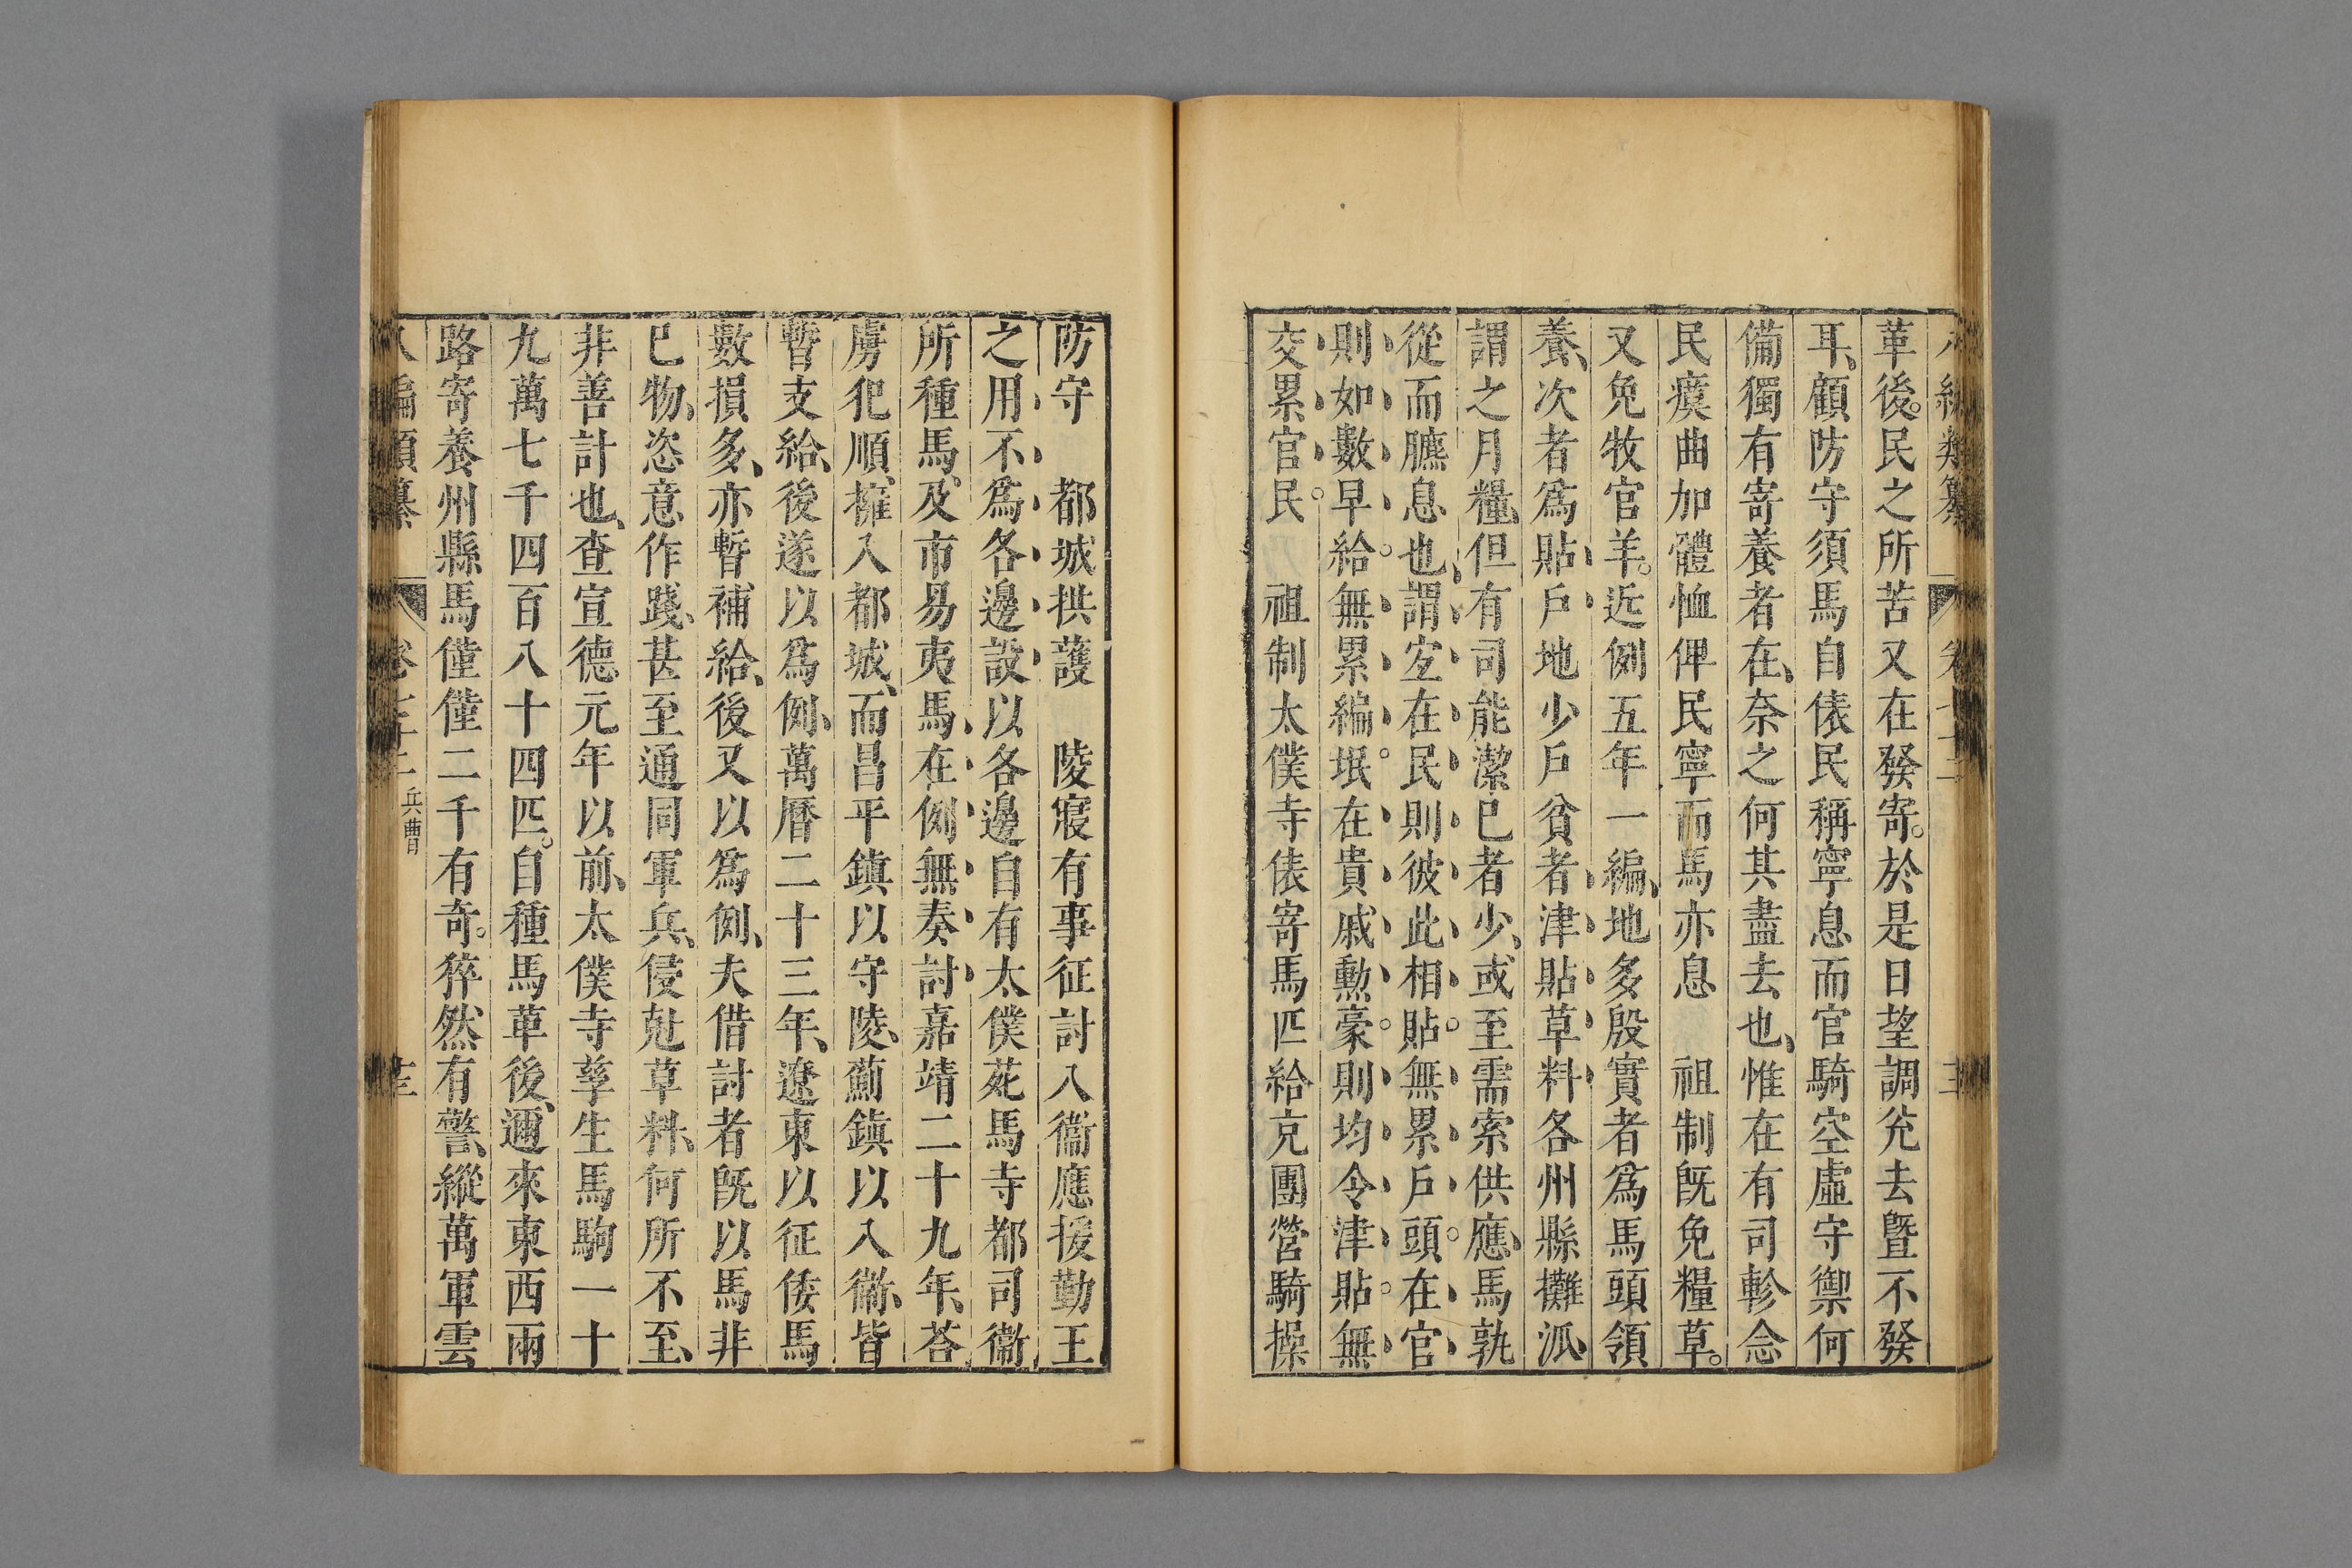 革後。民之所苦又在發寄。於是日望調兊去曁不發
耳、顧防守須馬自俵民稱寧息而官騎空虛守禦何
備獨有寄養者在、奈之何其盡去也、惟在有司軫念
民瘼曲加體恤俾民寧而馬亦息　祖制旣免糧草。
又免牧官羊。近例五年一編、地多殷實者爲馬頭領
養、次者爲貼戶地少戶貧者津貼草料各州縣攤派、
謂之月糧、但有司能潔已者少、或至需索供應、馬孰
從而臕息也、謂宜在民則彼此相貼。無累戶頭。在官
則如數早給。無累編氓。在貴戚勲豪。則均令津貼。無
交累官民。　祖制太僕寺俵寄馬匹給京團營騎操
防守　都城拱護　陵寢有事征討入衞應援勤王
之用、不爲各邊設以各邊自有太僕苑馬寺都司衞
所種馬、及市易夷馬、在例無奏討嘉靖二十九年、荅
虜犯順、擁入都城、而昌平鎭以守陵、薊鎭以入衞、皆
暫支給、後遂以爲例、萬曆二十三年、遼東以征倭馬
數損多、亦暫補給、後又以爲例、夫借討者旣以馬非
已物、恣意作踐、甚至通同軍兵、侵尅草料、何所不至、
非善計也、查宣德元年以前、太僕寺孳生馬駒一十
九萬七千四百八十四匹。自種馬革後、邇來東西兩
路寄養州縣馬僅僅二千有奇。猝然有警、縱萬軍雲
八編類纂　卷　兵曹